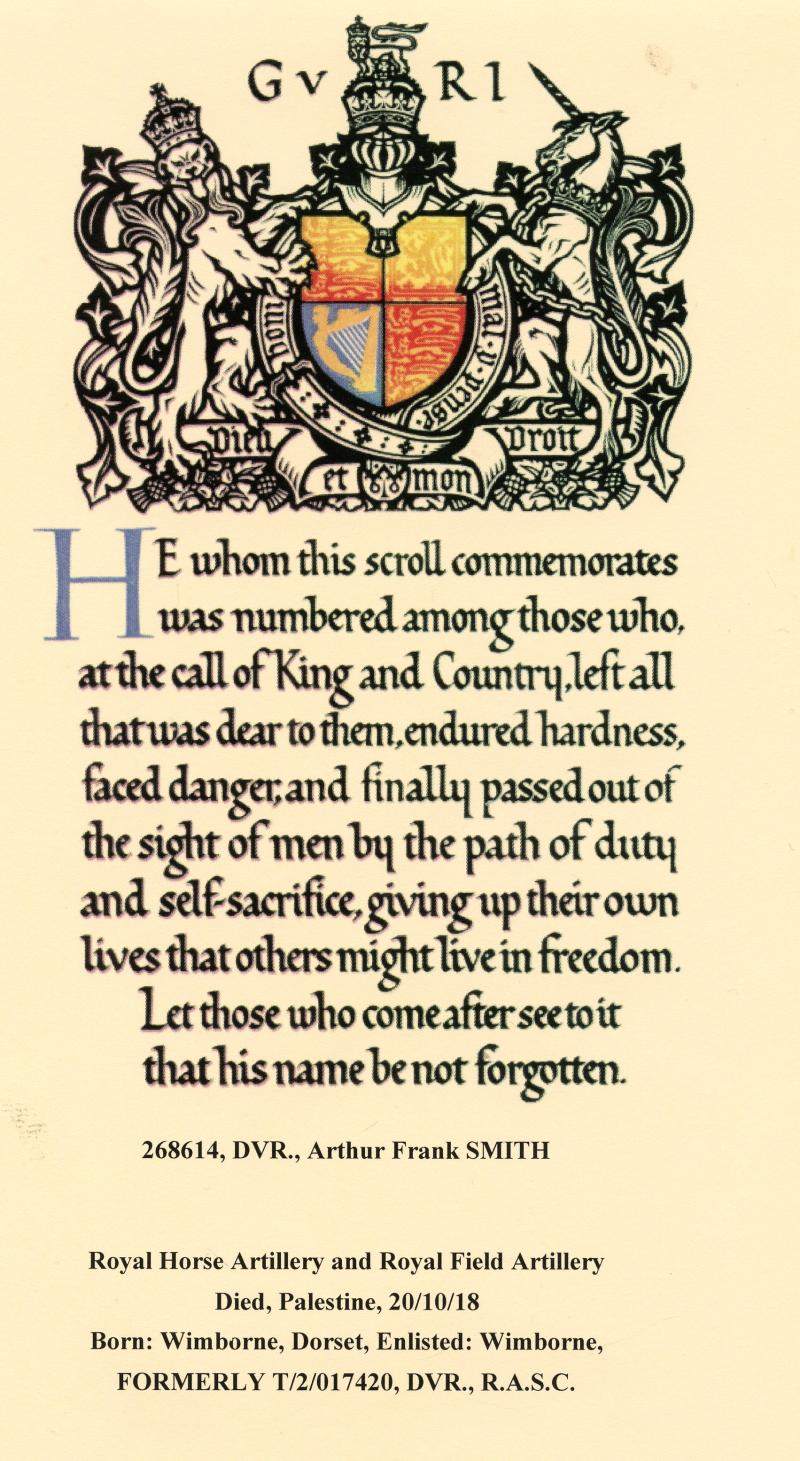 G V R I
honi mal·y·pense
Dieu Droit
et mon
HE whom this scroll commemorates
was numbered among those who,
at the call of King and Country, left all
that was dear to them, endured hardness,
faced danger, and finally passed out of
the sight of men by the path of duty
and self-sacrifice, giving up their own
lives that others might live in freedom.
Let those who come after see to it
that his name be not forgotten.
268614, DVR., Arthur Frank SMITH
Royal Horse Artillery and Royal Field Artillery
Died, Palestine, 20/10/18
Born: Wimborne, Dorset, Enlisted: Wimborne,
FORMERLY T/2/017420, DVR., R.A.S.C.